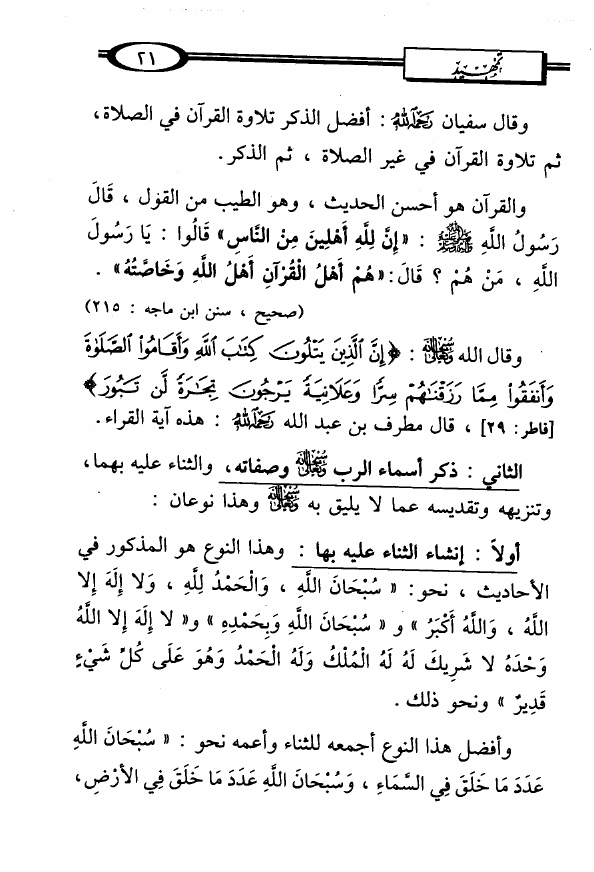 تمهيد
٢١
وقال سفيان رحمه الله : أفضل الذكر تلاوة القرآن في الصلاة،
ثم تلاوة القرآن في غير الصلاة ، ثم الذكر.
والقرآن هو أحسن الحديث ، وهو الطيب من القول ، قَالَ
رَسُولُ اللَّهِ ﷺ : «إِنَّ لِلَّهِ أَهْلِينَ مِنْ النَّاسِ» قَالُوا : يَا رَسُولَ
اللَّهِ ، مَنْ هُمْ ؟ قَالَ: «هُمْ أَهْلُ الْقُرْآنِ أَهْلُ اللَّهِ وَخَاصَّتُهُ» .
(صحيح ، سنن ابن ماجه : ٢١٥)
وقال الله ﷾ : ﴿إِنَّ ٱلَّذِينَ يَتْلُونَ كِتَٰبَ ٱللَّهِ وَأَقَامُوا۟ ٱلصَّلَوٰةَ
وَأَنفَقُوا۟ مِمَّا رَزَقْنَٰهُمْ سِرًّا وَعَلَانِيَةً يَرْجُونَ تِجَٰرَةً لَّن تَبُورَ﴾
[فاطر: ٢٩] ، قال مطرف بن عبد الله رحمه الله : هذه آية القراء.
الثاني : ذكر أسماء الرب ﷾ وصفاته، والثناء عليه بهما،
وتنزيهه وتقديسه عما لا يليق به ﷾ وهذا نوعان :
أولاً : إنشاء الثناء عليه بها : وهذا النوع هو المذكور في
الأحاديث ، نحو: « سُبْحَانَ اللَّهِ ، وَالْحَمْدُ لِلَّهِ ، وَلا إِلَهَ إِلا
اللَّهُ ، وَاللَّهُ أَكْبَرُ » و « سُبْحَانَ اللَّهِ وَبِحَمْدِهِ » و« لا إِلَهَ إِلا اللَّهُ
وَحْدَهُ لا شَرِيكَ لَهُ لَهُ الْمُلْكُ وَلَهُ الْحَمْدُ وَهُوَ عَلَى كُلِّ شَيْءٍ
قَدِيرٌ » ونحو ذلك .
وأفضل هذا النوع أجمعه للثناء وأعمه نحو : « سُبْحَانَ اللَّهِ
عَدَدَ مَا خَلَقَ فِي السَّمَاءِ ، وَسُبْحَانَ اللَّهِ عَدَدَ مَا خَلَقَ فِي الأَرْضِ،